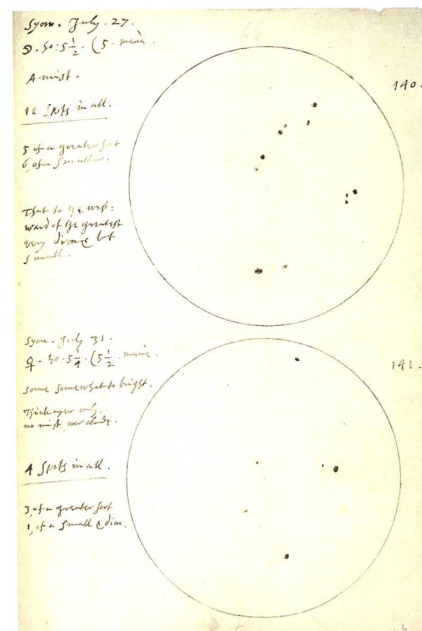 Syon. July. 27.
☉. ho: 5 1/2. (5. mane.
A mist.
140.
12 spots in all.
5 of a greater sort
6, of a smaller.
That to the west:
ward of the greatest
very dim but
small.
Syon. July 31.
ho: 5 1/4 (5 1/2. mane.
141.
sonne somewhat to bright.
Thick ayer only.
no mist, nor clouds.
4 spots in all.
3, of a greater sort
1, of a small & dim.